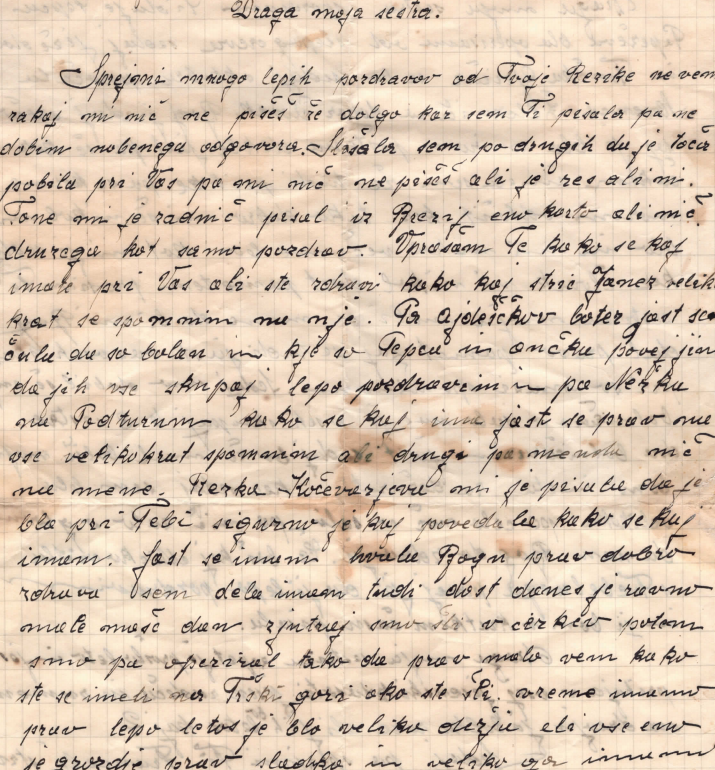 Draga moja sestra.
Sprejmi mnogo lepih pozdravov od Tvoje Rezike ne vem
zakaj mi nič ne pišeš že dolgo kar sem Ti pisala pa ne
dobim nobenega odgovora. Slišala sem po drugih da je toča
pobila pri Vas pa mi nič ne pišeš ali je res ali ni.
Tone mi je zadnič pisal iz Brezij eno karto ali nič
druzega kot samo pozdrav. Vprašam Te kako se kaj
imate pri Vas ali ste zdravi kako kaj stric Janez velik
krat se spomnim na nje. Pa Ajdeščkov boter jast sem
čula da so bolan in kje so Tepca in ančka povej jim
da jih vse skupaj lepo pozdravim in pa Nežka
na Podturnum kako se kaj ima jast se prav na
vse velikokrat spomnim ali drugi pa menda nič
na mene. Rezka Kočevarjova mi je pisala da je
bla pri Tebi sigurno je kaj povedala kako se kaj
imam. Jast se imam hvala Bogu prav dobro
zdrava sem dela imam tudi dost danes je ravno
male maše dan zjutraj smo šli v cerkev potem
smo pa vpeziral tako da prav malo vem kako
ste se imeli na Trški gori ako ste šli. vreme imamo
prav lepo letos je blo veliko dežja ali vse eno
je grozdje prav sladko in veliko ga imamo